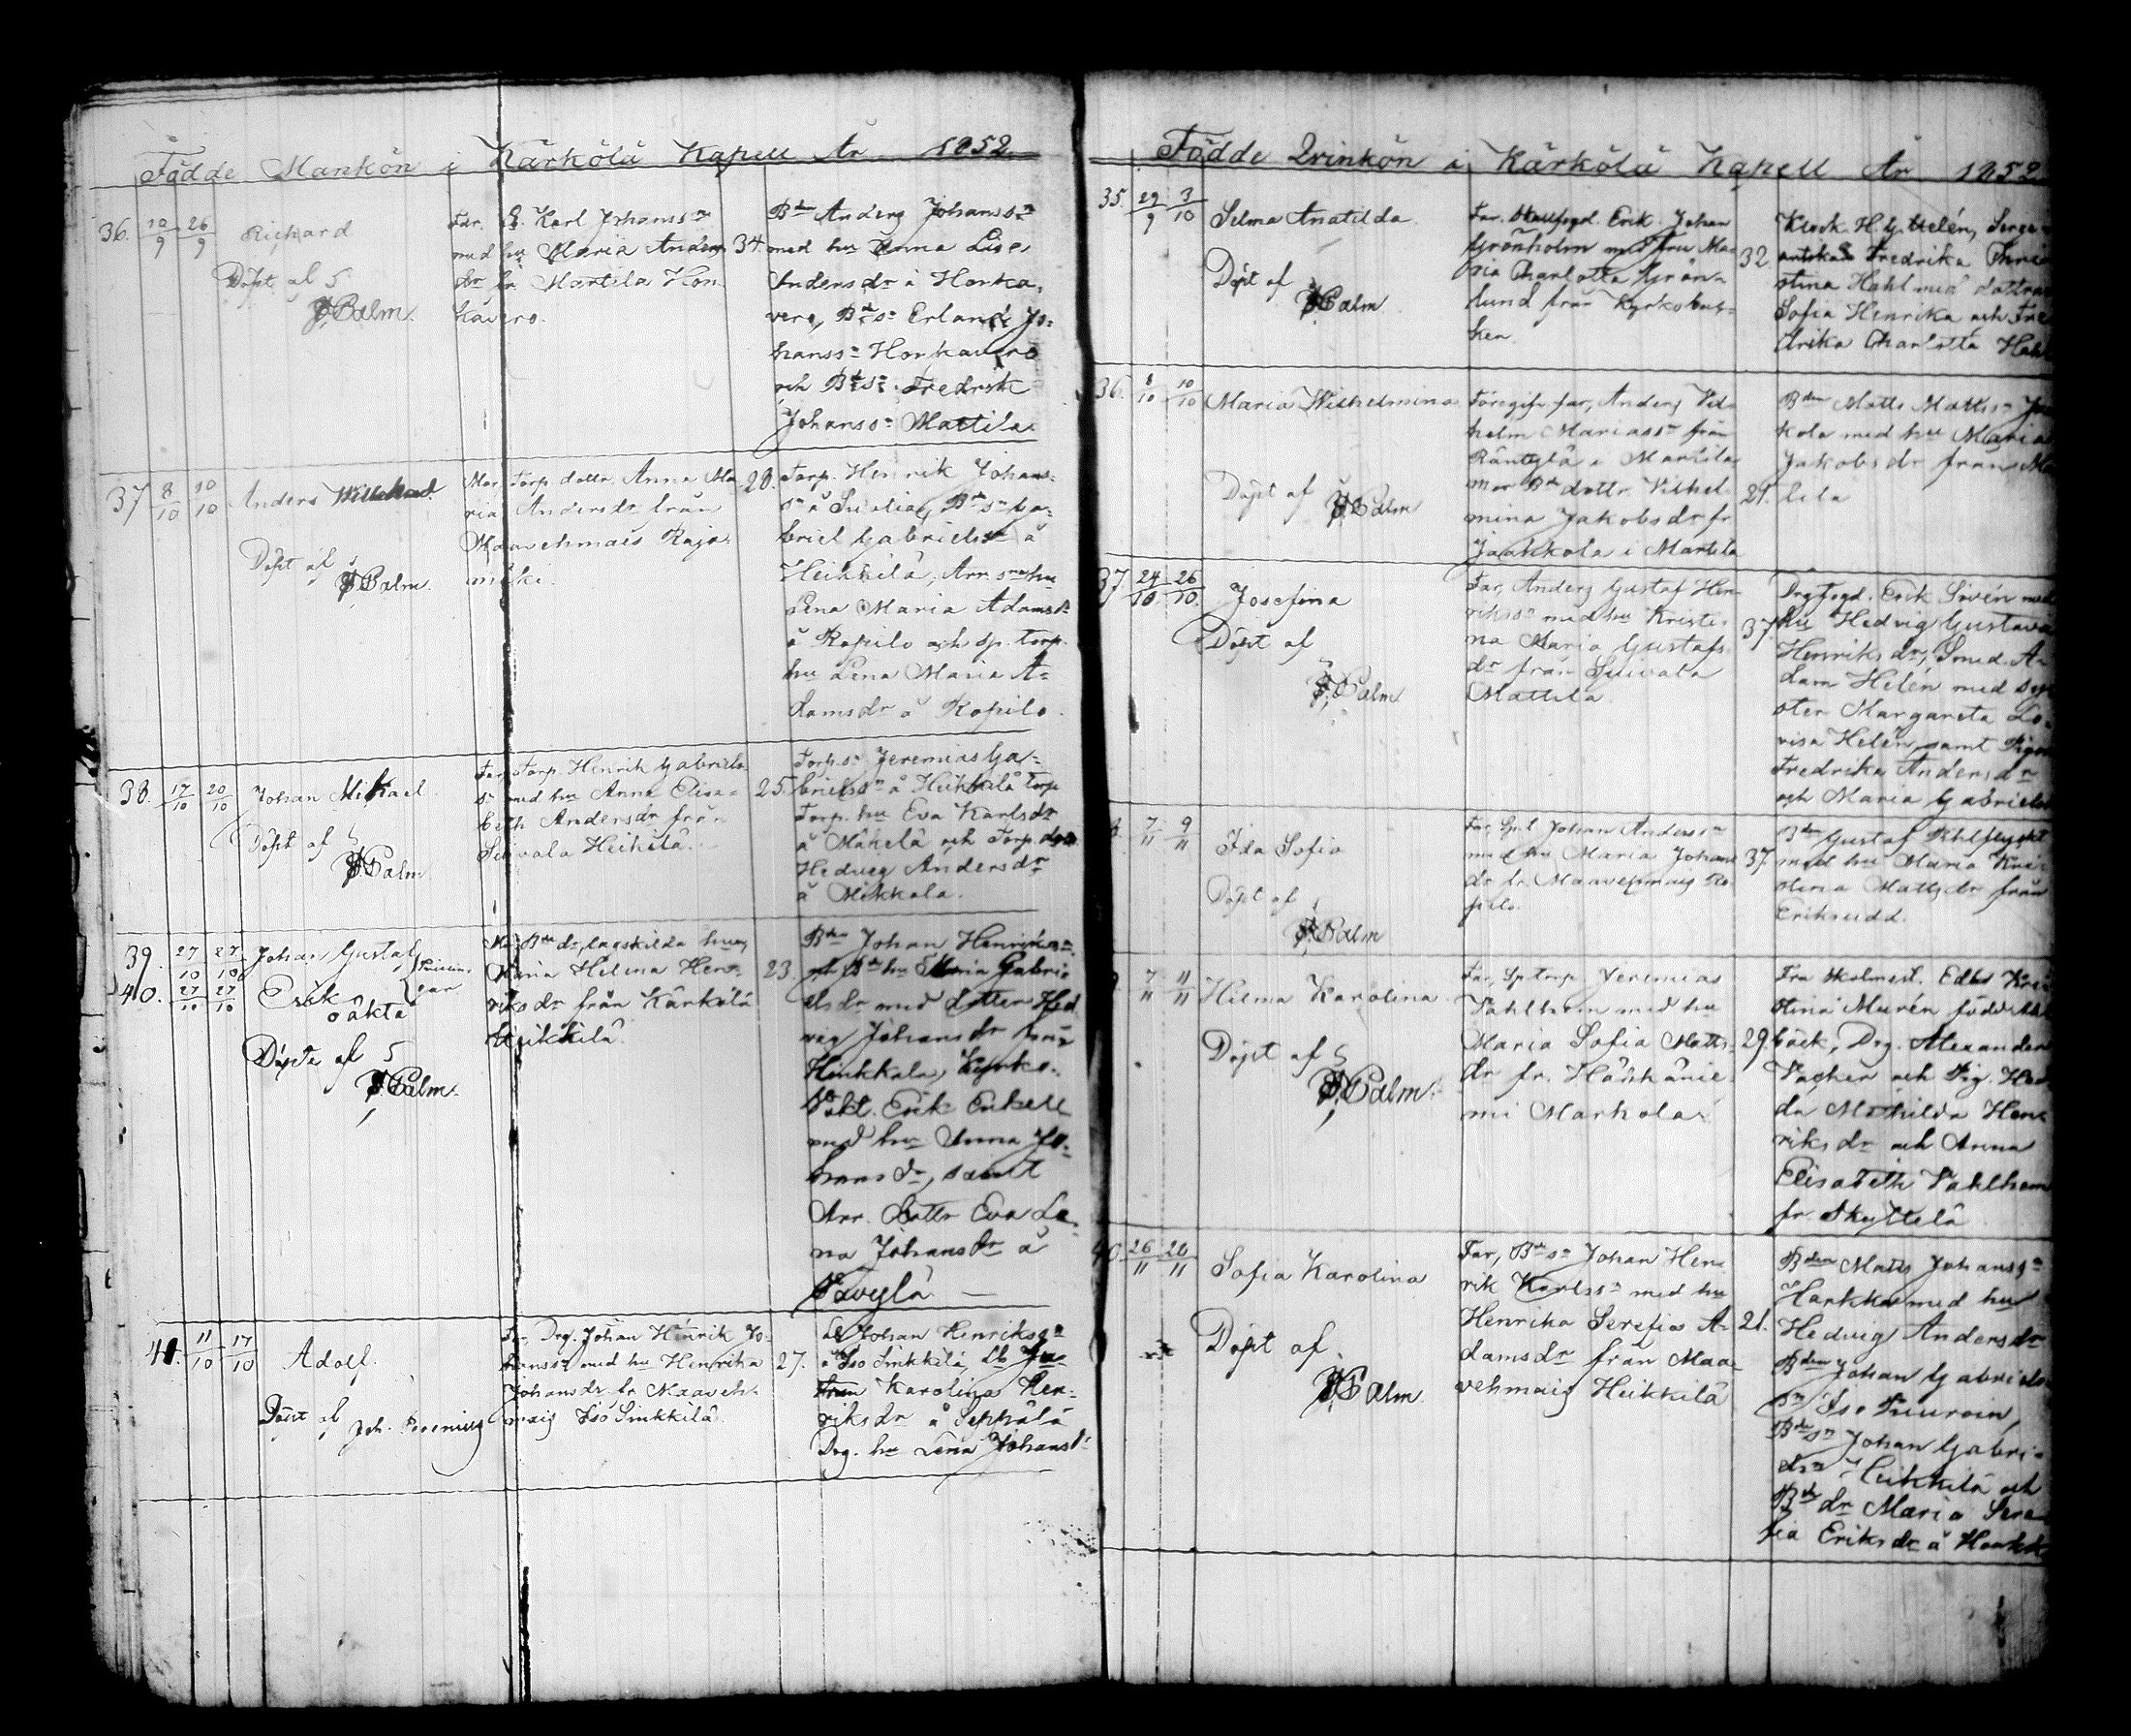 Födde Mankön i Kärkölä Kapell År 1852.
36. 10/9 26/9 Richard
Döpt af
J Palm.
Far, Karl Johanss n
med hu Maria Anders
dr fr Martila Hon
kavero.
34.
B den Anders Johanss n
med hu Anna Lisa
Andersdr å Honka
vero, B de s n Erland Jo-
hanss n Honkavero
och B de s n Fredrik
Johanss n Mattila
37 8/10 10/10 Anders
Döpt af
J Palm.
Mor, Torp dottr. Anna Ma
ria Andersdr från
Maavehmais Raja
mäki.
20.
Torp. Henrik Johans-
s n å B de s n Ga-
briel Gabrielss n å
Heikkilä, Arr. s ns hu
Lena Maria Adamsd r
å Ropilo och sp. torp.
hu Lena Maria A-
damsdr å Ropilo.
38. 17/10 20/10 Johan Mikael.
Döpt af
J Palm
Far, Torp. Henrik Gabriels
s n med hu Anna Elisa-
beth Andersdr från
Heikkilä.
25.
Torp. s n Jeremias Ga-
brielss n å Heikkilä Torp
Torp. hu Eva Karlsdr
å Mäkelä och Torp. dr
Hedvig Andersdr
å Mikkola.
39. 27/10 27/10 Johan Gustaf
40. 27/10 27/10 Erik
oäkta
Döpta af
J Palm.
Mor, B de dr, lagskilda hu
Maria Helena Hen-
riksdr från Kärkölä
Heikkilä.
23.
B den Johan Henrikss n
och B de hu Maria Gabri-
elsdr med dotter Hed
vig Johansdr från
Hinkkala, Kyrko-
väkt. Erik Enkell
med hu Anna Jo-
hansdr, samt
Arr. dottr Eva Le-
na Johansdr å
Sävylä
41. 11/10 17/10 Adolf.
Döpt af Joh.
Far, Drg. Johan Henrik Jo-
hanss n med hu Henrika
Johansdr fr Maaveh-
maig Iso Sinkkilä.
27.
Johan Henrikss n
å Iso Sinkkilä,
Karolina Hen-
riksdr å Seppälä
Drg. hu Lena Johansd r
Födde Qvinkön i Kärkölä Kapell År 1852.
35. 29/9 3/10 Selma Matilda
Döpt af
J Palm
Far. Erik Johan
Grönholm med fru Ma-
ria Charlotta Grön-
lund från Kyrkobac-
ken.
32
Klock. H. G. Helén, Serge
antskan Fredrika Chri
stina Hahl med döttrar
Sofia Henrika och Fre
drika Charlotta Hahl
36. 8/10 10/10 Maria Wilhelmina
Döpt af
J Palm
Föregifn far, Anders Vil-
helm Mariass n från
Räntylä i Martila
mor B de dottr. Vilhel
mina Jakobsdr fr
Jaakkola i Martila
21.
B den Matts Mattss n
kola med hu Maria
Jakobsdr från Ma
lela
37. 24/10 26/10 Josefina
Döpt af
J Palm
Far, Anders Gustaf Hen-
rikss n med hu Kristi-
na Maria Gustafs
dr från
Mattila.
37.
Drgfogd. Erik med
hu Hedvig Gustava
Henriksdr, Smed. A-
dam Helén med sy
ster Margareta Lo-
visa Helén samt Pigor
Fredrika Andersdr
och Maria Gabriels
7/11 9/11 Ida Sofia
Döpt af
J Palm
Far, Johan Anderss n
med hu Maria Johans
dr fr. Maavehmaig Ro
pilo.
37.
B den Gustaf
med hu Maria Kri-
stina Mattsdr från
Eriksudd.
7/11 11/11 Hilma Karolina
Döpt af
J Palm.
Far, Sp torp. Jeremias
Vahlbom med hu
Maria Sofia Matts
dr fr. Hähkänie-
mi Markola
29.
Fru
stina Murén född Ahl
bäck, Drg. Alexander
och Pig. Hed
da Mathilda Hen-
riksdr och Anna
Elisabeth Vahlbom
fr. Skyttelä
40. 26/11 26/11 Sofia Karolina
Döpt af
J Palm.
Far, B de s n Johan Hen-
rik Karlss n med hu
Henrika Serefia A-
damsdr från Maa-
vehmaig Heikkilä
21.
B den Matts Johanss n
med hu
Hedvig Andersdr
B den Johan Gabriels
s n Iso
B de s n Johan Gabri-
elss n Heikkilä och
B de dr Maria Sere-
fia Eriksdr å